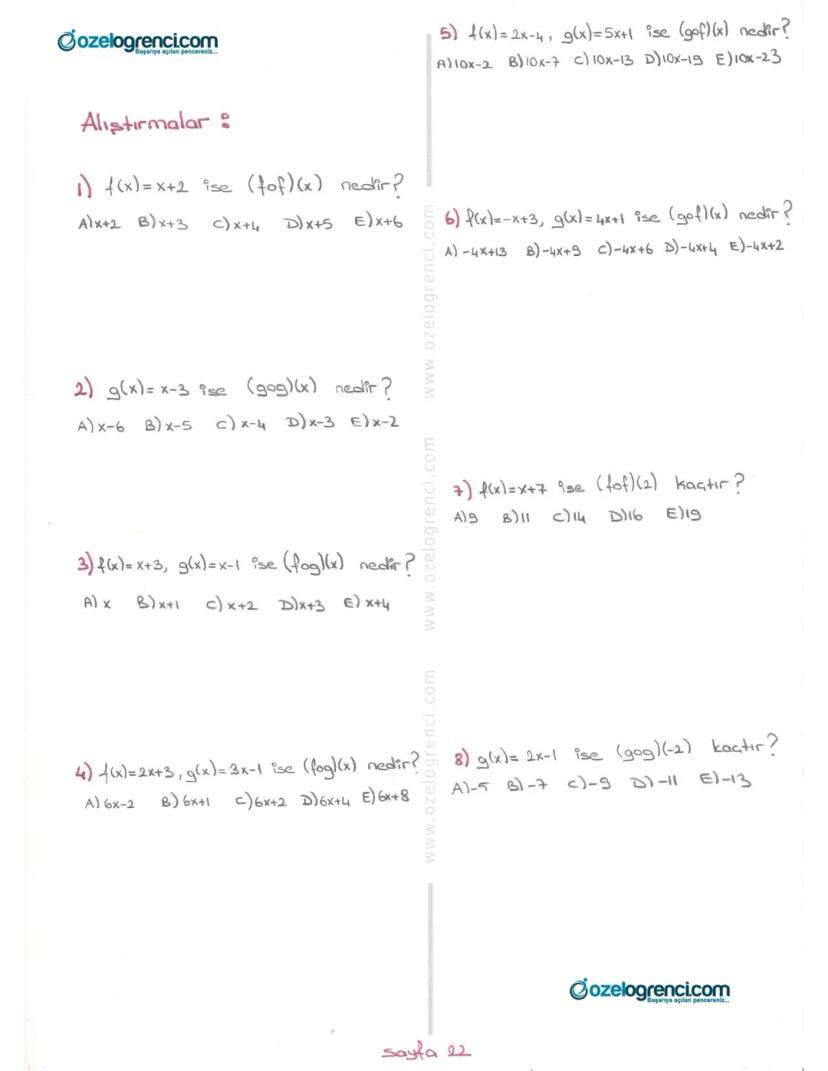 ozelogrenci.com
Başarıya açılan pencereniz...
Alıştırmalar :
1) f(x)=x+2 ise (fof)(x) nedir?
A)x+2 B)x+3 C)x+4 D)x+5 E)x+6
2) g(x)=x-3 ise (gog)(x) nedir?
A)x-6 B)x-5 C)x-4 D)x-3 E)x-2
3) f(x)=x+3, g(x)=x-1 ise (fog)(x) nedir?
A) x B)x+1 C)x+2 D)x+3 E) x+4
4) f(x)=2x+3, g(x)=3x-1 ise (fog)(x) nedir?
A) 6x-2 B) 6x+1 C)6x+2 D)6x+4 E)6x+8
5) f(x)=2x-4, g(x)=5x+1 ise (gof)(x) nedir?
A)10x-2 B)10x-7 C)10x-13 D)10x-19 E)10x-23
6) f(x)=-x+3, g(x)=4x+1 ise (gof)(x) nedir?
A) -4x+13 B)-4x+9 C)-4x+6 D)-4x+4 E)-4x+2
7) f(x)=x+7 ise (fof)(2) kaçtır?
A)9 B)11 C)14 D)16 E)19
8) g(x)=2x-1 ise (gog)(-2) kaçtır?
A)-5 B)-7 C)-9 D)-11 E)-13
www.ozelogrenci.com
www.ozelogrenci.com
www.ozelogrenci.com
ozelogrenci.com
Başarıya açılan pencereniz...
sayfa 22